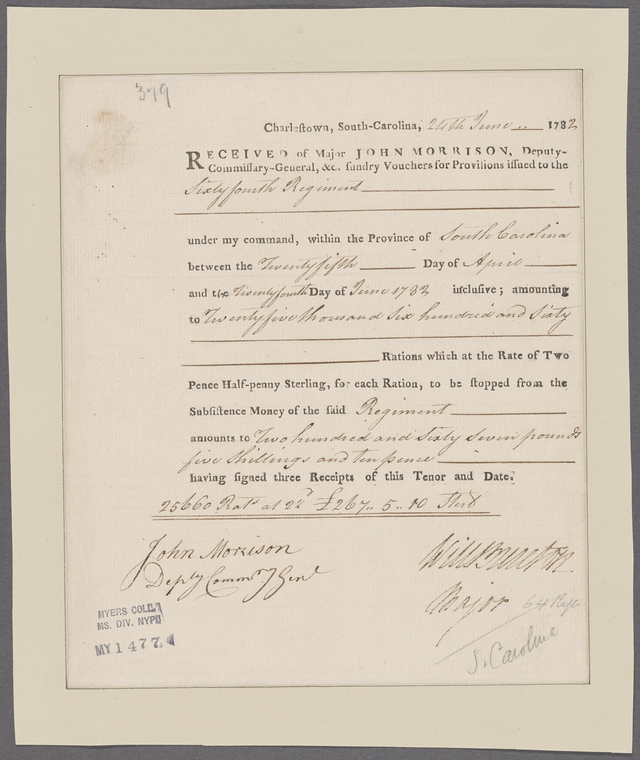 379
Charlestown, South-Carolina, 24th June 1782
RECEIVED of Major JOHN MORRISON, Deputy-
Commissary-General, &c. sundry Vouchers for Provisions issued to the
Sixty fourth Regiment
under my command, within the Province of South Carolina
between the Twenty fifth Day of April
and the Twenty fourth Day of June 1782 inclusive; amounting
to Twenty five thousand Six hundred and Sixty
Rations which at the Rate of Two
Pence Half-penny Sterling, for each Ration, to be stopped from the
Subsistence Money of the said Regiment
amounts to Two hundred and Sixty Seven pounds
five Shillings and ten pence
having signed three Receipts of this Tenor and Date.
25660 Rats at 2½d £267.. 5.. 10 Sterl
John Morrison
Deply Commy Genl
Major 64 Regt
S. Caroline
MYERS COLL.
MS. DIV. NYPL
MY 1477